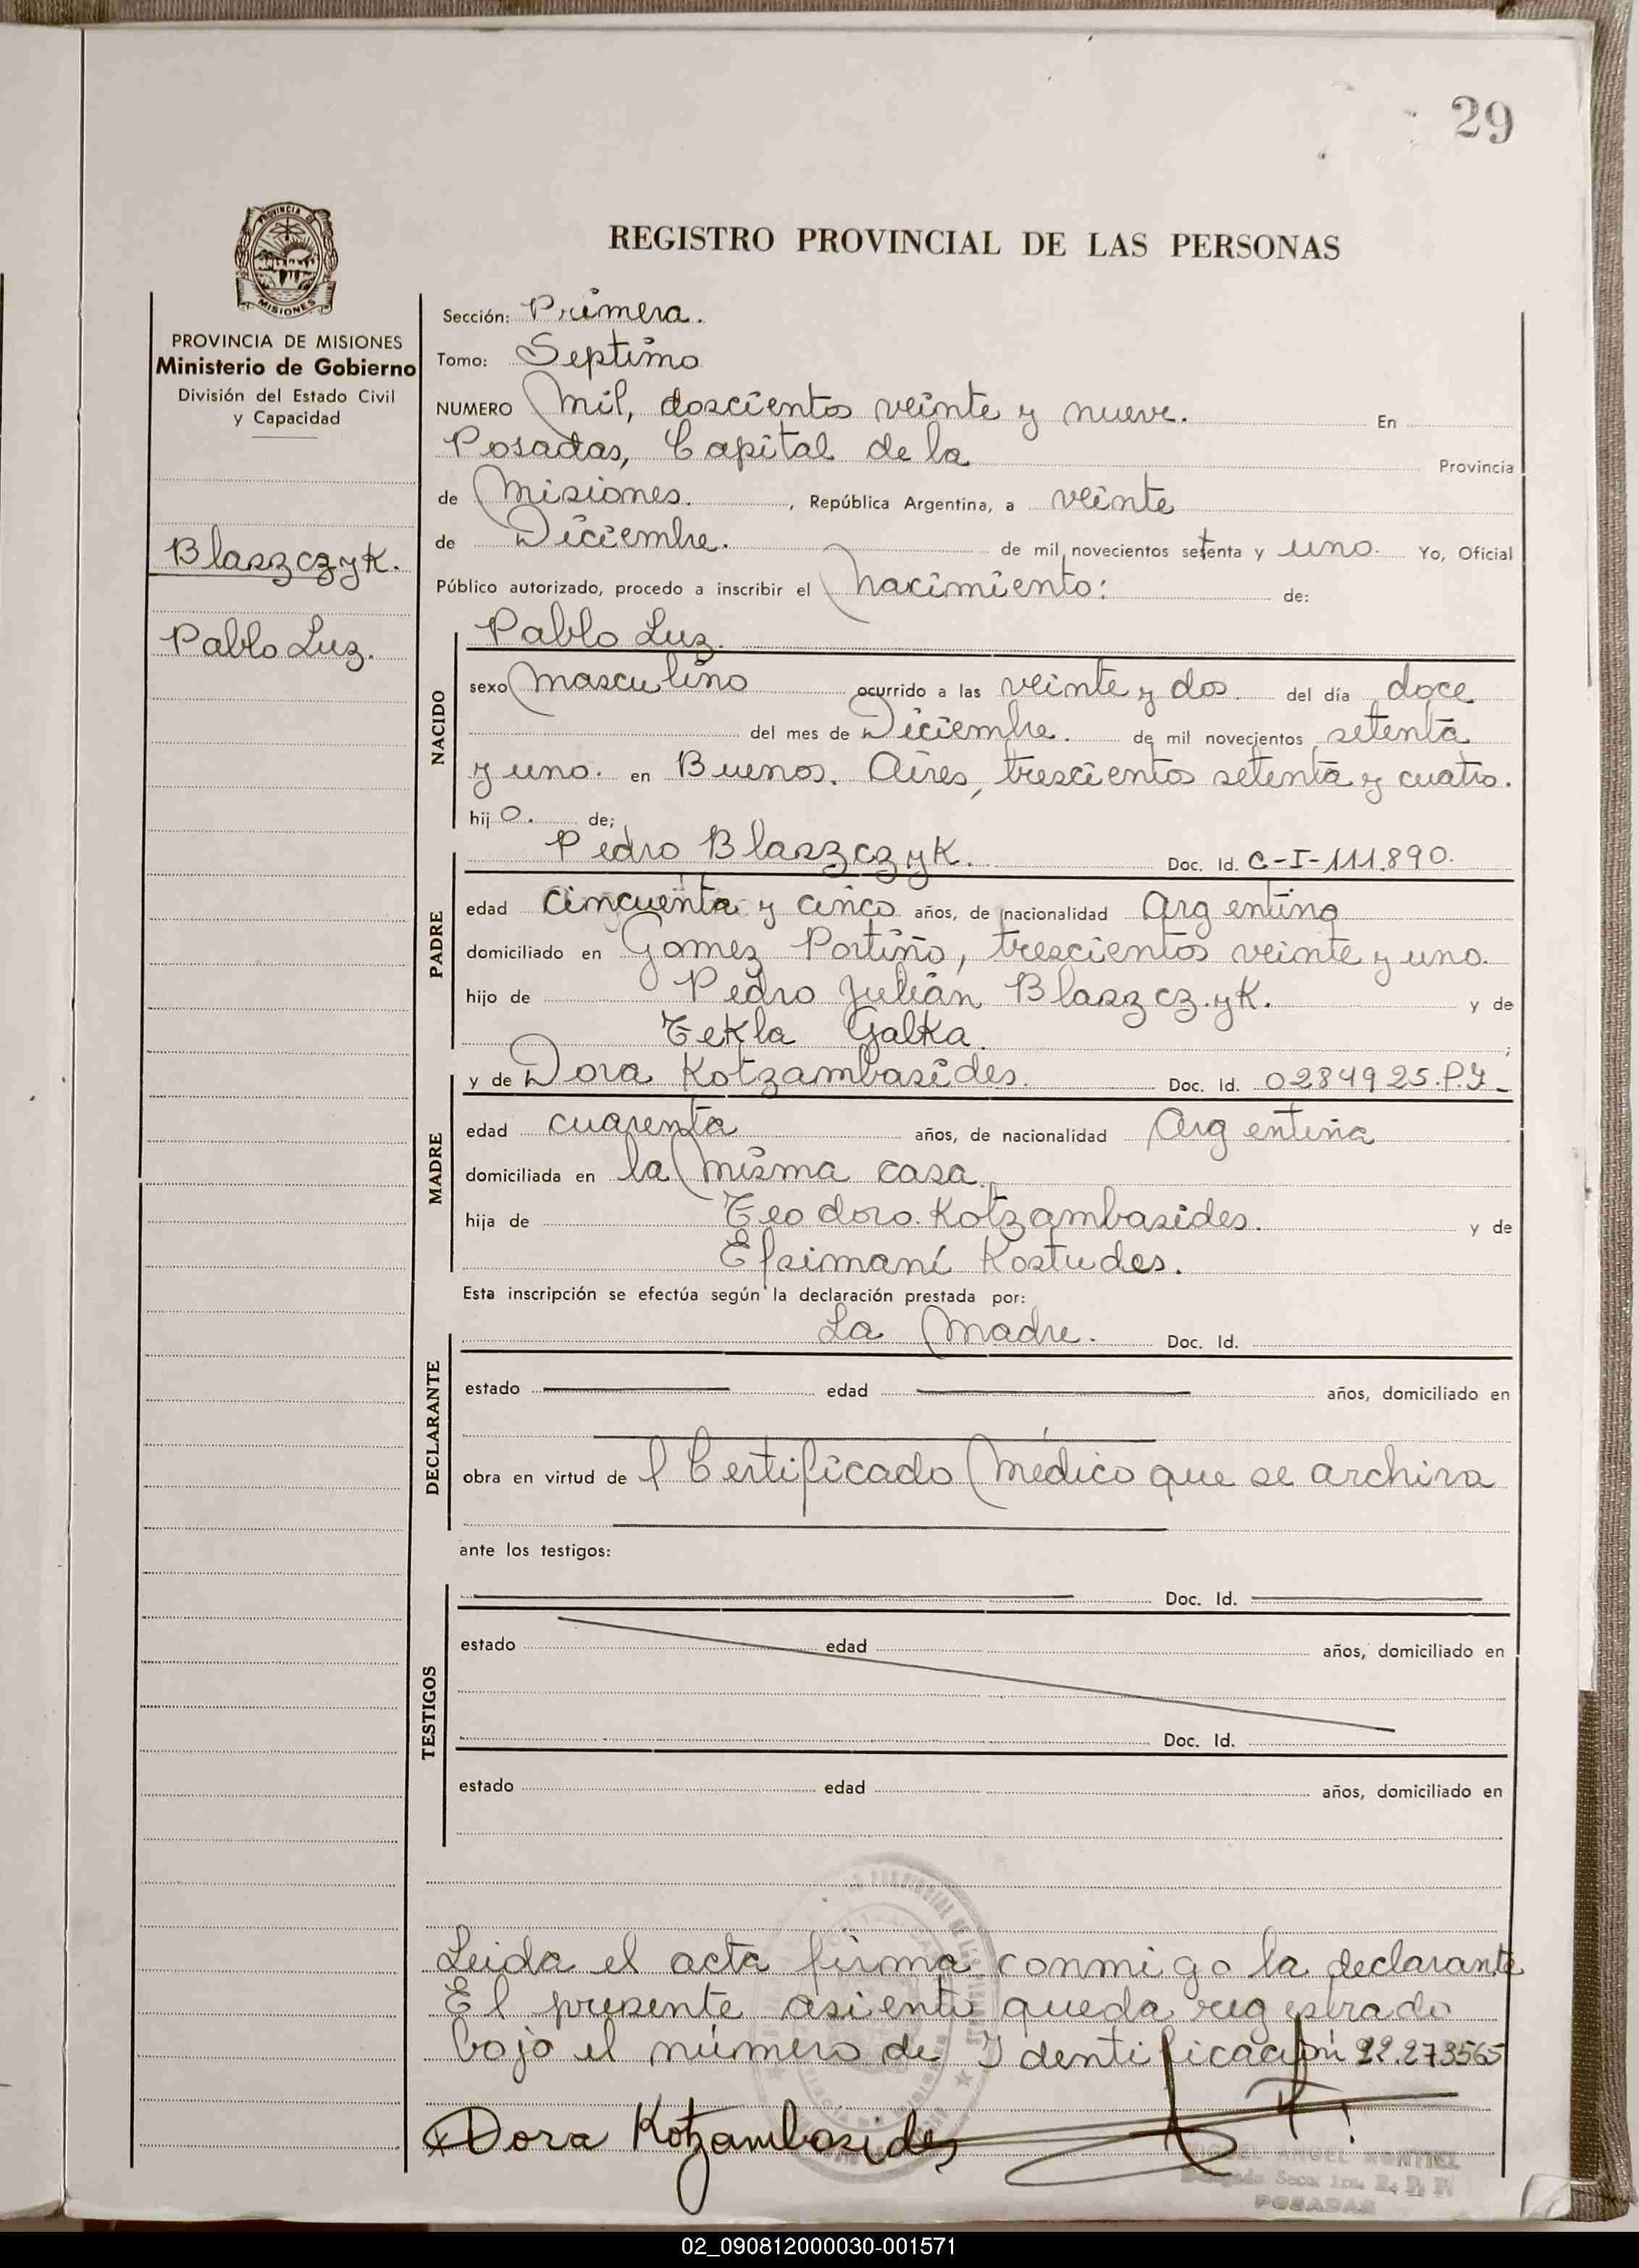 29
PROVINCIA DE
MISIONES
REGISTRO PROVINCIAL DE LAS PERSONAS
PROVINCIA DE MISIONES
Ministerio de Gobierno
División del Estado Civil
y Capacidad
Blaszczyk.
Pablo Luz.
Sección: Primera.
Tomo: Septimo
NUMERO Mil, doscientos veinte y nueve. En
Posadas, Capital de la Provincia
de Misiones. , República Argentina, a veinte
de Diciembre. de mil novecientos setenta y uno. Yo, Oficial
Público autorizado, procedo a inscribir el Nacimiento: de:
NACIDO
Pablo Luz.
sexo masculino ocurrido a las veinte y dos. del día doce
del mes de Diciembre. de mil novecientos setenta
y uno. en Buenos. Aires, trescientos setenta y cuatro.
hijo. de;
PADRE
Pedro Blaszczyk. Doc. Id. C-I-111.890.
edad cincuenta y cinco años, de nacionalidad Argentina
domiciliado en Gomez Portiño, trescientos veinte y uno.
hijo de Pedro Julián Blaszcz.yk. y de
Tekla Galka. ;
MADRE
y de Dora Kotzambasides. Doc. Id. 0284925.P.Y-
edad cuarenta años, de nacionalidad Argentina
domiciliada en la misma casa.
hija de Teodoro. Kotzambasides. y de
Efsimaní Kostudes.
Esta inscripción se efectúa según la declaración prestada por:
DECLARANTE
La Madre. Doc. Id.
estado edad años, domiciliado en
obra en virtud del Certificado Médico que se archiva
ante los testigos:
TESTIGOS
Doc. Id.
estado edad años, domiciliado en
Doc. Id.
estado edad años, domiciliado en
Leida el acta firma conmigo la declarante
El presente asiento queda registrado
bajo el número de Identificación 22.273565
Dora Kotzambasides
MIGUEL ANGEL MONTIEL
Delegado Secc. 1ra. R. P. P.
POSADAS
02_090812000030-001571